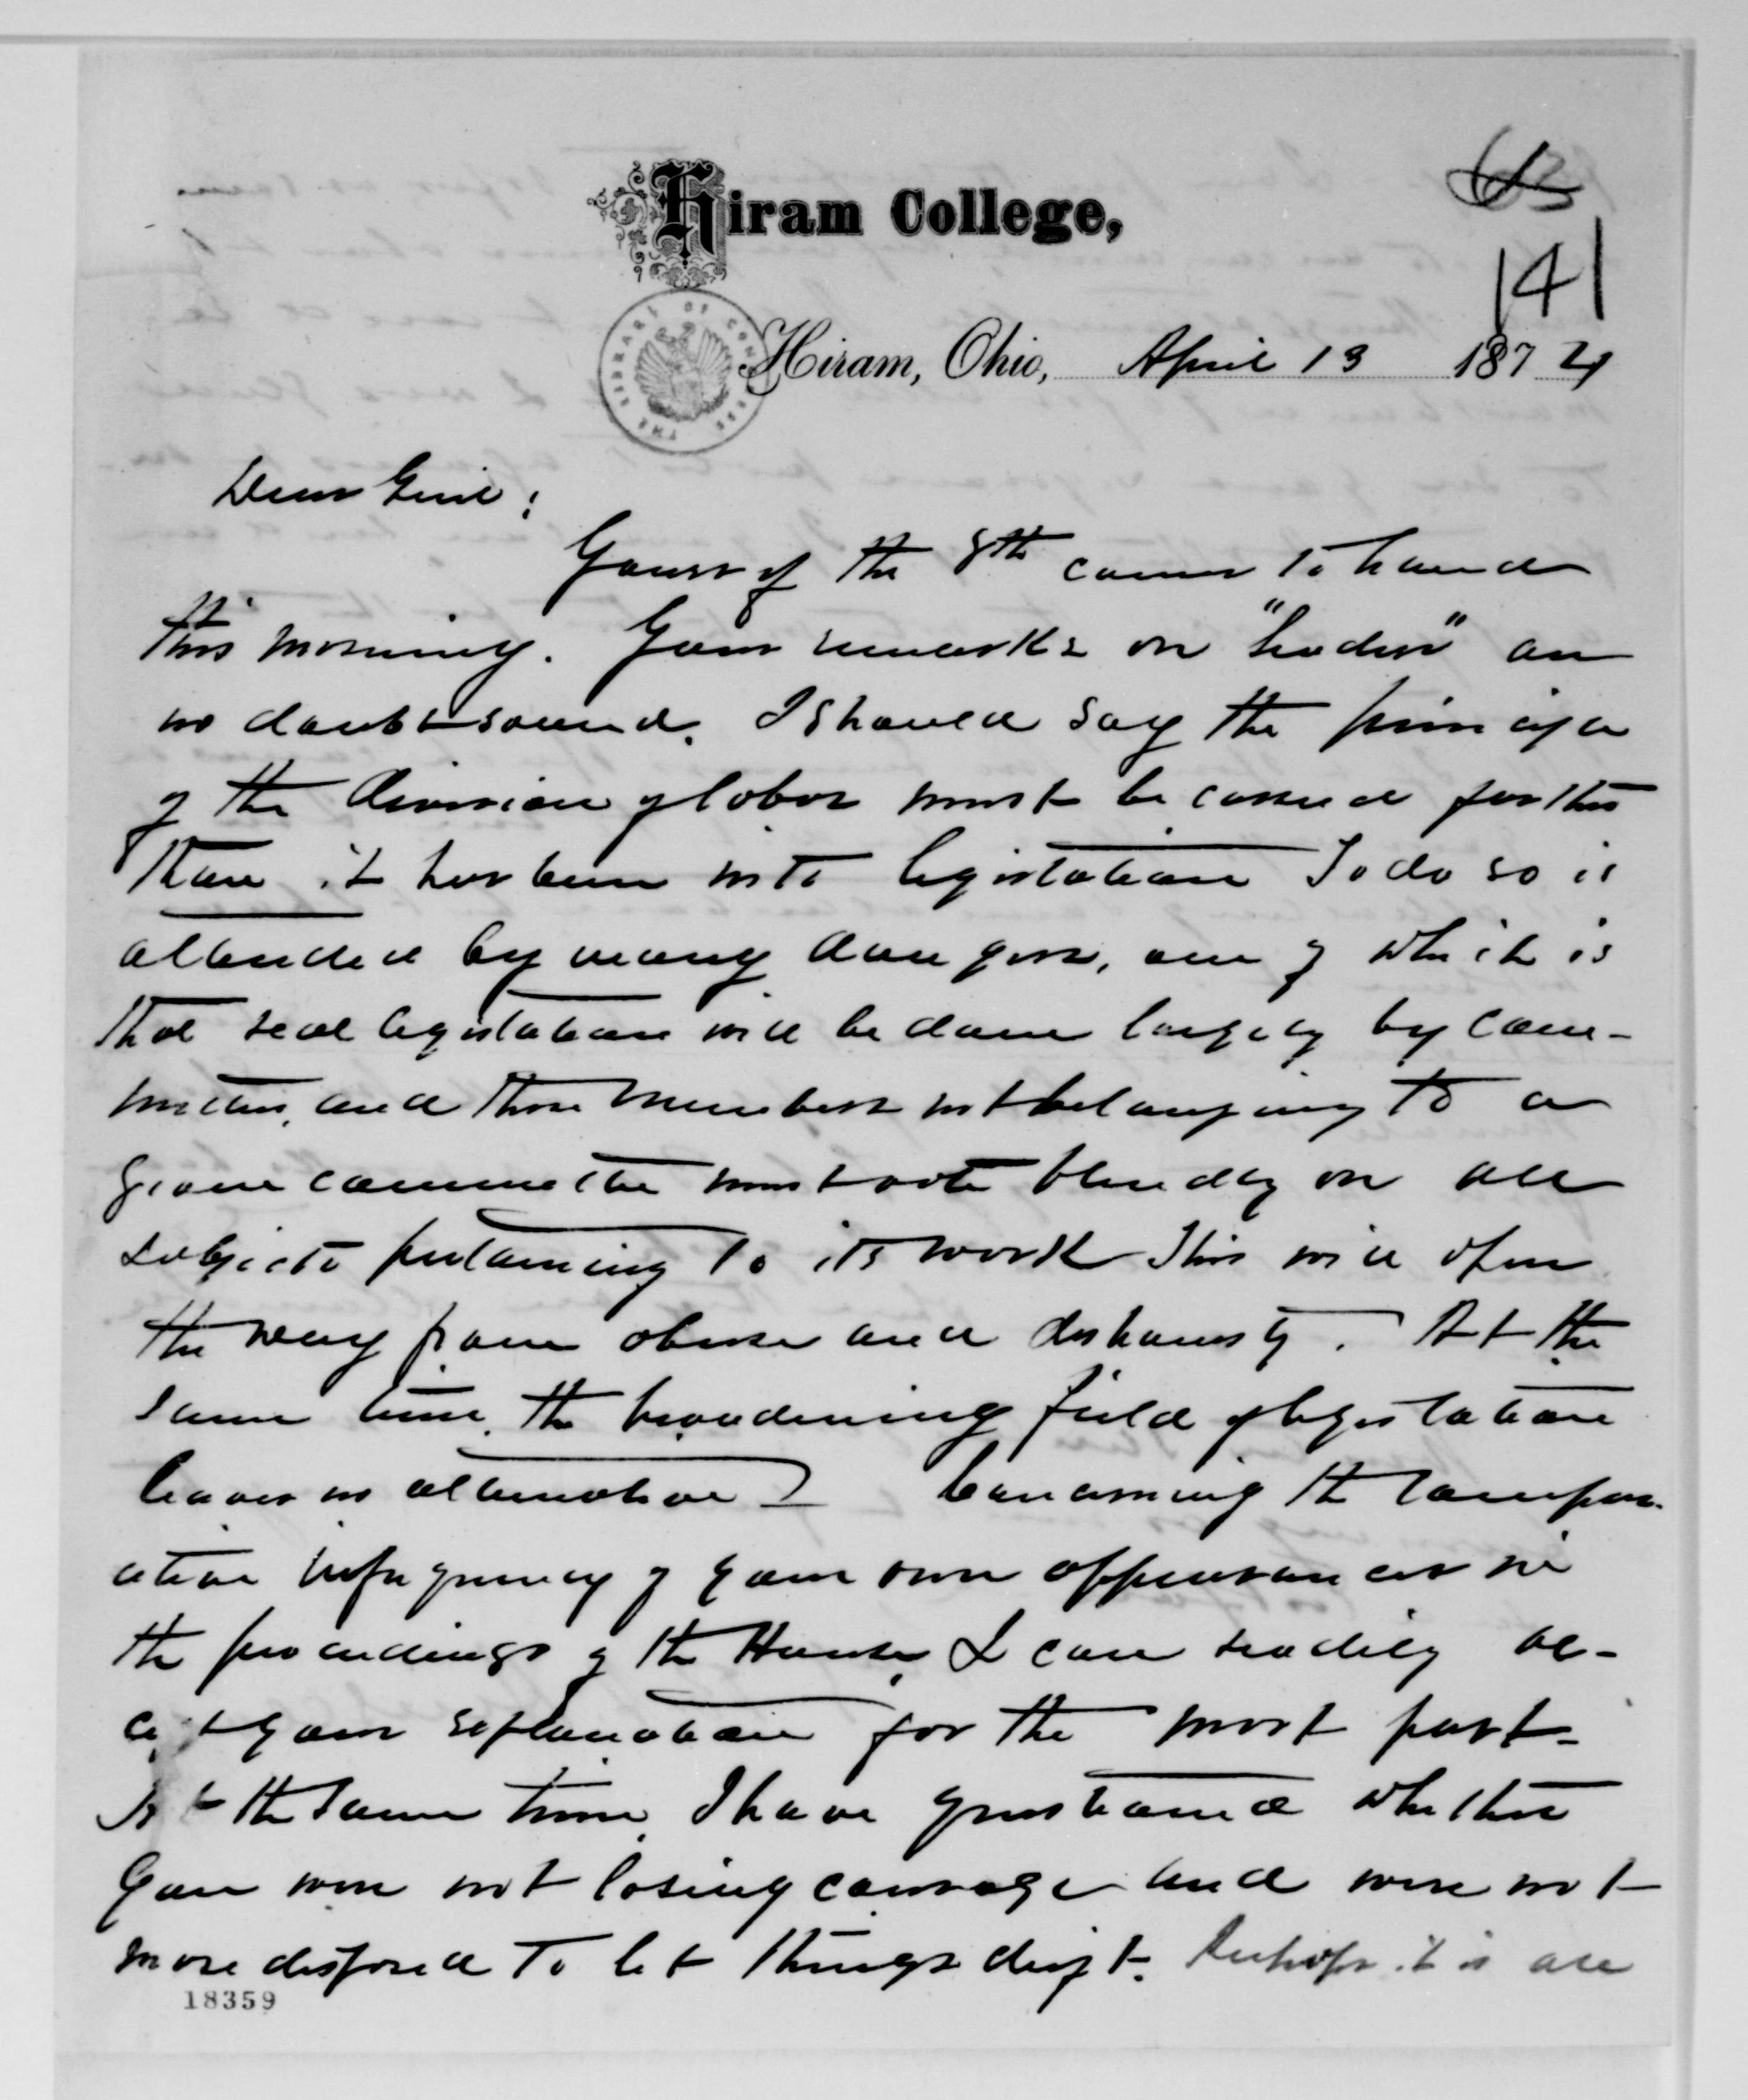 Hiram College,
141
THE LIBRARY OF CONGRESS
Hiram, Ohio, April 13 1874
Dear Genl:
Yours of the 8th came to hand
this morning. Your remarks on "leaders" are
no doubt sound. I should say the principle
of the division of labor must be carried further
than it has been into legislation To do so is
attended by many dangers, one of which is
that real legislation will be done largely by com-
mittees, and those members not belonging to a
given committee must vote blindly on all
subjects pertaining to its work This will open
the way for abuse and dishonesty. At the
same time, the broadening field of legislation
leaves no alternative Concerning the compar-
ative infrequency of your own appearances in
the proceedings of the House, I can readily ac-
cept your explanation for the most part.
At the same time, I have questioned whether
you were not losing courage and were not
more disposed to let things drift. Perhaps it is all
18359